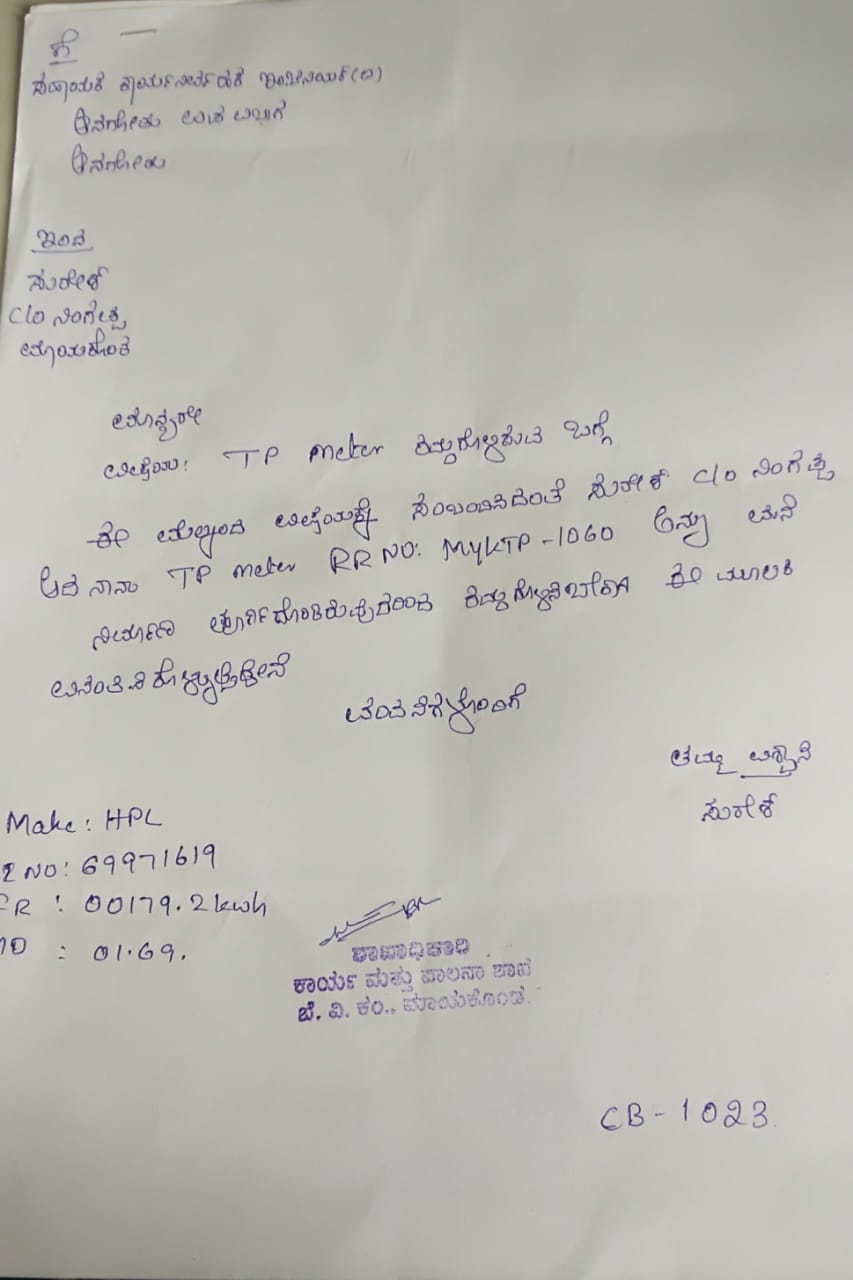 ಗೆ
ಸಹಾಯಕ ಕಾರ್ಯನಿರ್ವಾಹಕ ಇಂಜಿನಿಯರ್(ವಿ)
ಆನಗೋಡು ಉಪ ವಿಭಾಗ
ಆನಗೋಡು
ಇಂದ
ಸುರೇಶ್
C/o ನಿಂಗಪ್ಪ
ಮಾಯಕೊಂಡ
ಮಾನ್ಯರೇ
ವಿಷಯ: TP meter ಕಿತ್ತುಕೊಳ್ಳುವ ಬಗ್ಗೆ
ಈ ಮೇಲ್ಕಂಡ ವಿಷಯಕ್ಕೆ ಸಂಬಂಧಿಸಿದಂತೆ ಸುರೇಶ್ C/o ನಿಂಗಪ್ಪ
ಆದ ನಾನು TP meter RR NO: MYKTP-1060 ಅನ್ನು ಮನೆ
ನಿರ್ಮಾಣ ಪೂರ್ಣಗೊಂಡಿರುವುದರಿಂದ ಕಿತ್ತುಕೊಳ್ಳಬೇಕಾಗಿ ಈ ಮೂಲಕ
ವಿನಂತಿಸಿಕೊಳ್ಳುತ್ತೇನೆ
ವಂದನೆಗಳೊಂದಿಗೆ
ತಮ್ಮ ವಿಶ್ವಾಸಿ
ಸುರೇಶ್
Make: HPL
NO: 69971619
R : 00179.2 kwh
MD : 01.69.
ಶಾಖಾಧಿಕಾರಿ
ಕಾರ್ಯ ಮತ್ತು ಪಾಲನಾ ಶಾಖೆ
ಬೆ. ವಿ. ಕಂ., ಮಾಯಕೊಂಡ.
CB-1023